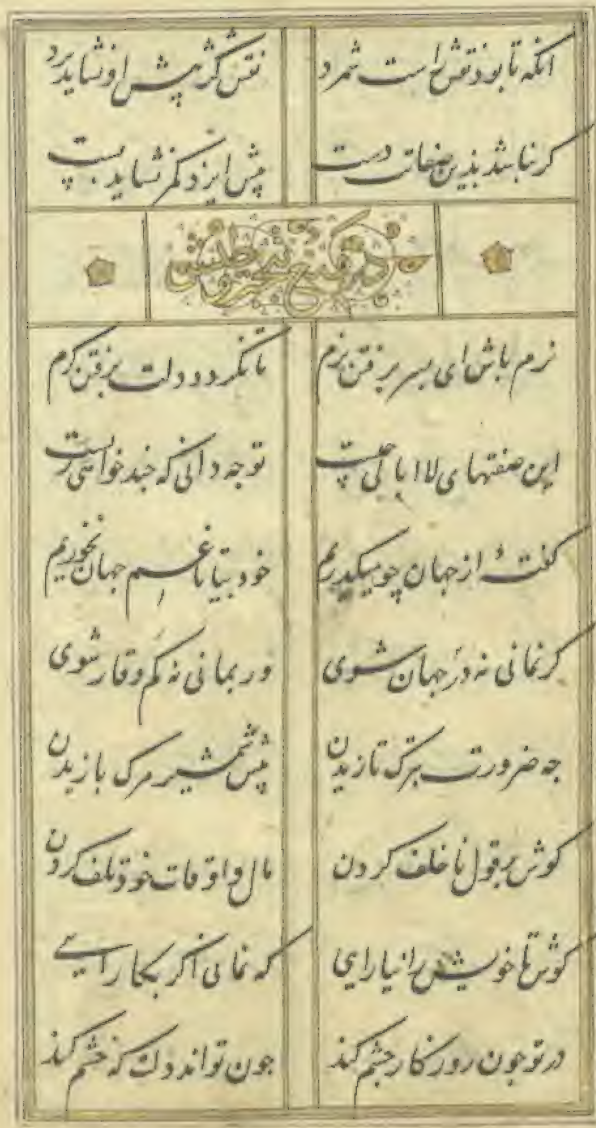 انکه تا بوذ نقش راست شمرد نقش کژ پیش او نشاید برد
کر نباشد بذین صفات دست پیش ایزد کمر نشاید بست
در توبیخ
نرم باش ای پسر برفتن نرم تا نکردد دلت برفتن کرم
این صفتهای لا ابالی چیست توجه دانی که چند خواهی زیست
کفتهٔ از جهان چو میکذریم خود بیتا تا غم جهان نخوریم
کر نمانی نه در جهان شوی ور بمانی نه کم وقار شوی
جه ضرورت بترک تازیدن پیش شمشیر مرک بازیدن
کوش بر قول ناخلف کردن مال و اوقات خوذ تلف کردن
کوش تا خویش را نیارایی که نمانی اکر بکار آیی
در تو جون روزکار جشم کند جون تواند دلت که خشم کند